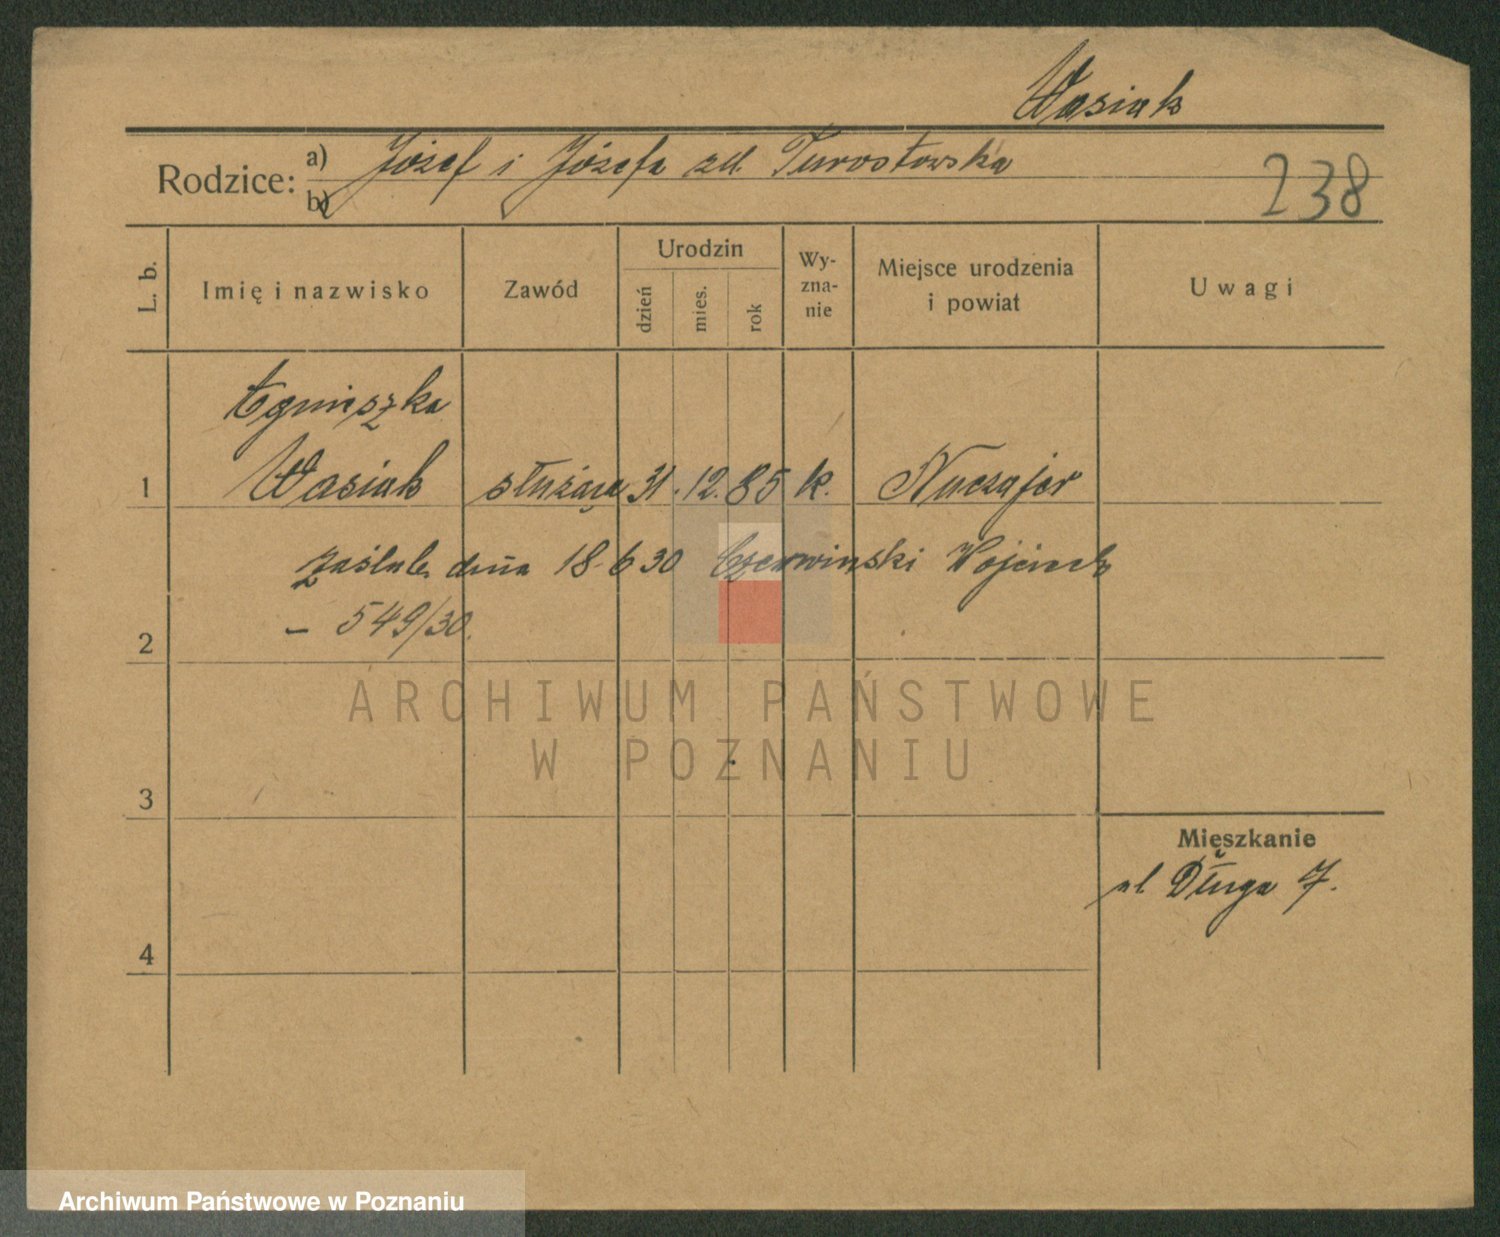 Wasiak
Rodzice: a) Józef i Józefa zd. Turostowska
b)
238
L. b.
Imię i nazwisko
Zawód
Urodzin
dzień
mies.
rok
Wy-
zna-
nie
Miejsce urodzenia
i powiat
Uwagi
Agnieszka
1 Wasiak służąca 31. 12. 85 k.
zaślub. dnia 18.6 30 Czerwinski Wojciech
2 – 549/30.
ARCHIWUM PAŃSTWOWE
W POZNANIU
3
Mieszkanie
ul Długa 7.
4
Archiwum Państwowe w Poznaniu